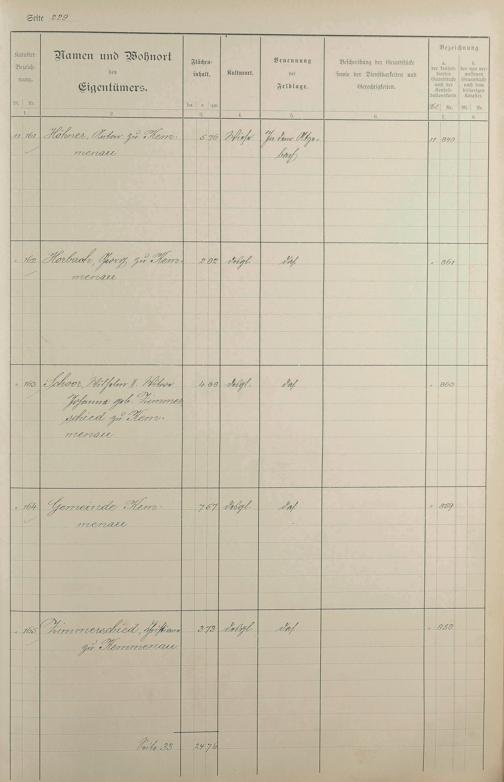 Seite 229
Karatier
Bezeich-
nung.
Bl. Nr.
1.
Namen und Wohnort
des
Eigentümers.
2.
Flächen-
inhalt.
ha a qm
3.
Kulturart.
4.
Benennung
der
Feldlage.
5.
Beschreibung der Grundstücke
sowie der Dienstbarkeiten und
Gerechtigkeiten.
6.
Bezeichnung
a.
b.
Bl. Nr.
Bl. Nr.
7.
8.
11 161 Höhner, Anton zu Kem-
menau
5 76 Wiese In dem
bach
11 840
" 162 Horbach, Georg, zu Kem-
menau
2 02 desgl. das.
" 861
" 163 Schoor, Wilhelm 8. Witwe
Johanna geb. Zimmer
schied zu Kem-
menau
4 88 desgl. das.
" 860
" 164 Gemeinde Kem-
menau
7 57 desgl. das.
" 859
" 165 Zimmerschied,
zu Kemmenau
3 73 desgl. das.
" 858
Seite 33 24 76